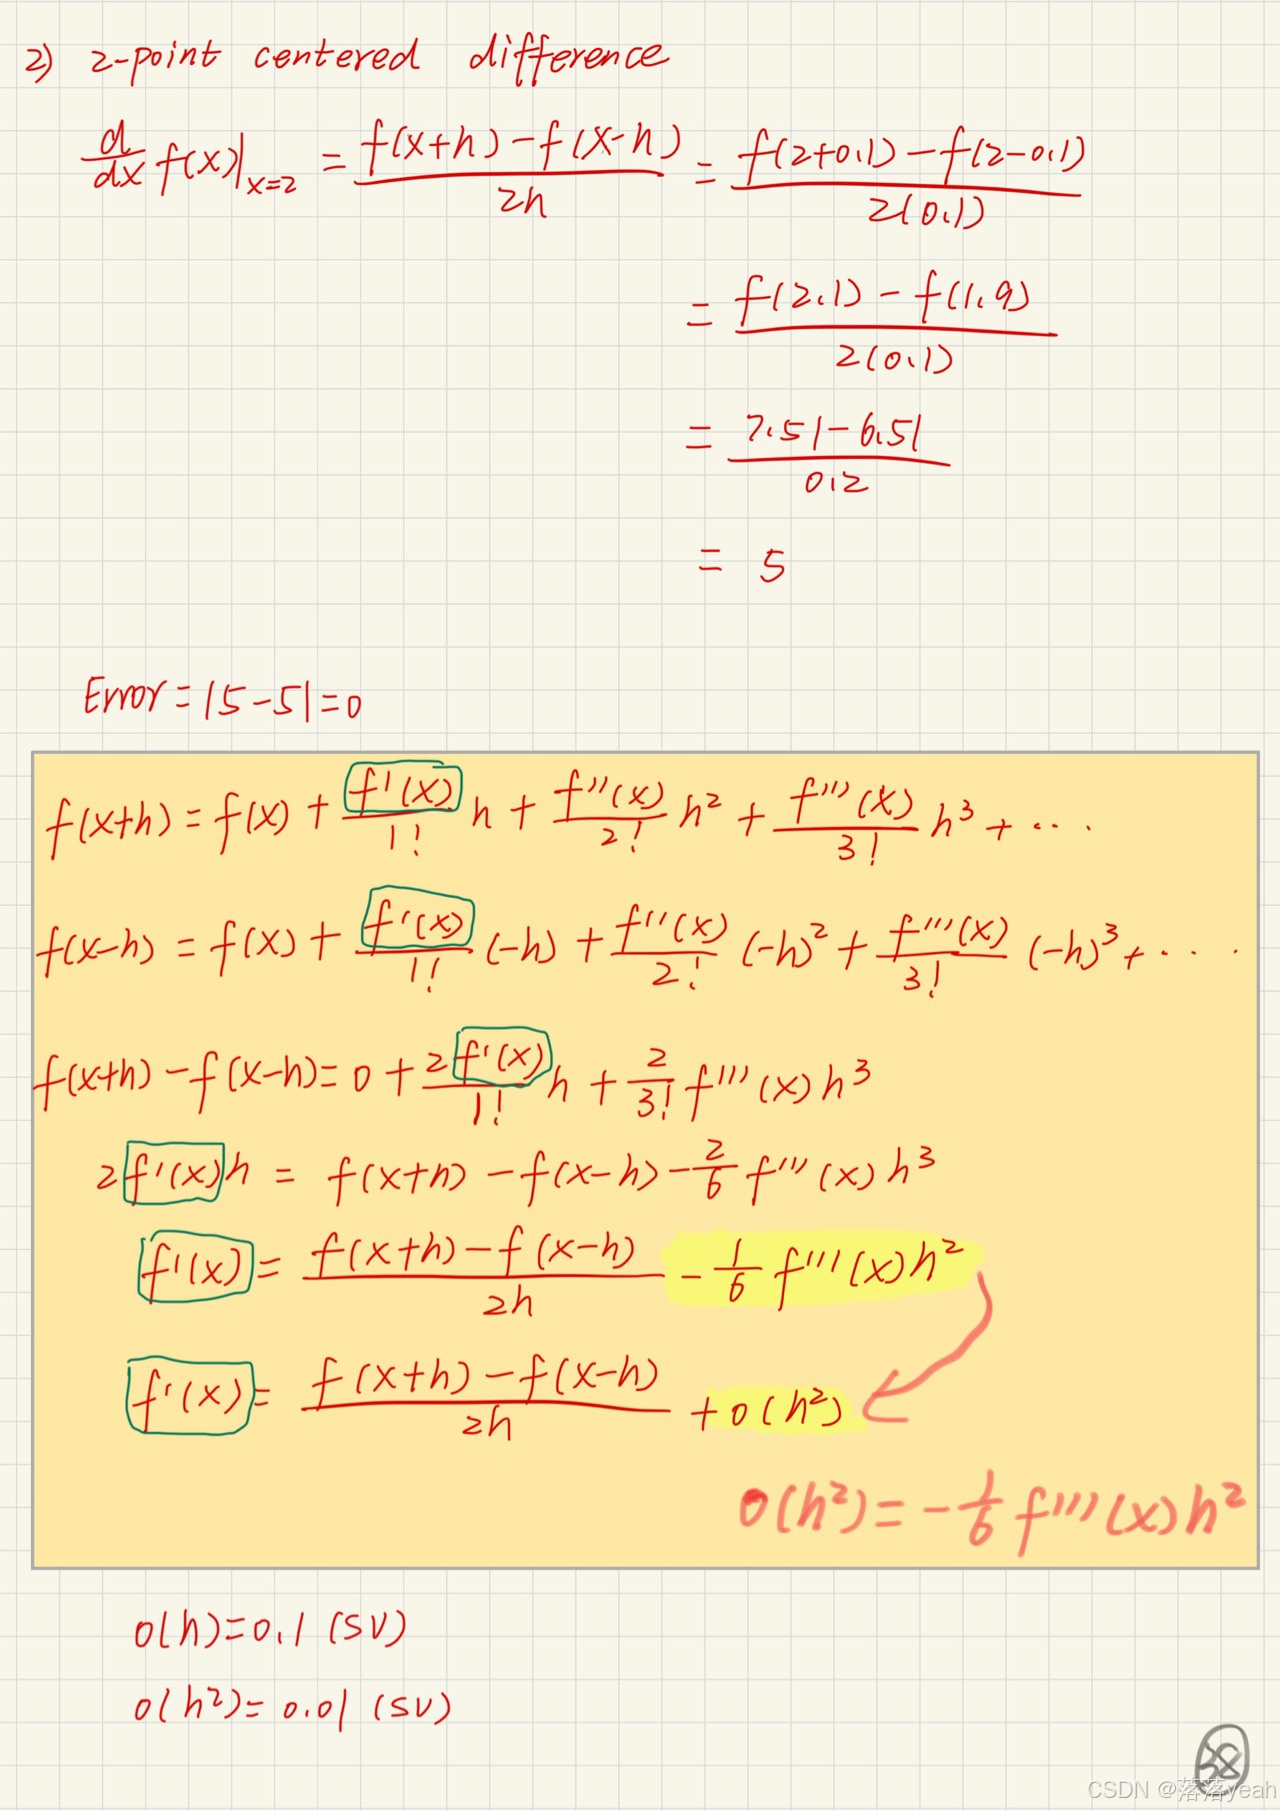 2) 2-point centered difference
d/dx f(x)|x=2 = (f(x+h) - f(x-h))/2h = (f(2+0.1) - f(2-0.1))/2(0.1)
= (f(2.1) - f(1.9))/2(0.1)
= (7.51 - 6.51)/0.2
= 5
Error = |5-5| = 0
f(x+h) = f(x) + f'(x)/1! h + f''(x)/2! h² + f'''(x)/3! h³ + ...
f(x-h) = f(x) + f'(x)/1! (-h) + f''(x)/2! (-h)² + f'''(x)/3! (-h)³ + ...
f(x+h) - f(x-h) = 0 + 2f'(x)/1! h + 2/3! f'''(x) h³
2f'(x)h = f(x+h) - f(x-h) - 2/6 f'''(x) h³
f'(x) = (f(x+h) - f(x-h))/2h - 1/6 f'''(x) h²
f'(x) = (f(x+h) - f(x-h))/2h + O(h²)
O(h²) = - 1/6 f'''(x) h²
O(h) = 0.1 (SV)
O(h²) = 0.01 (SV)
CSDN @落落yeah